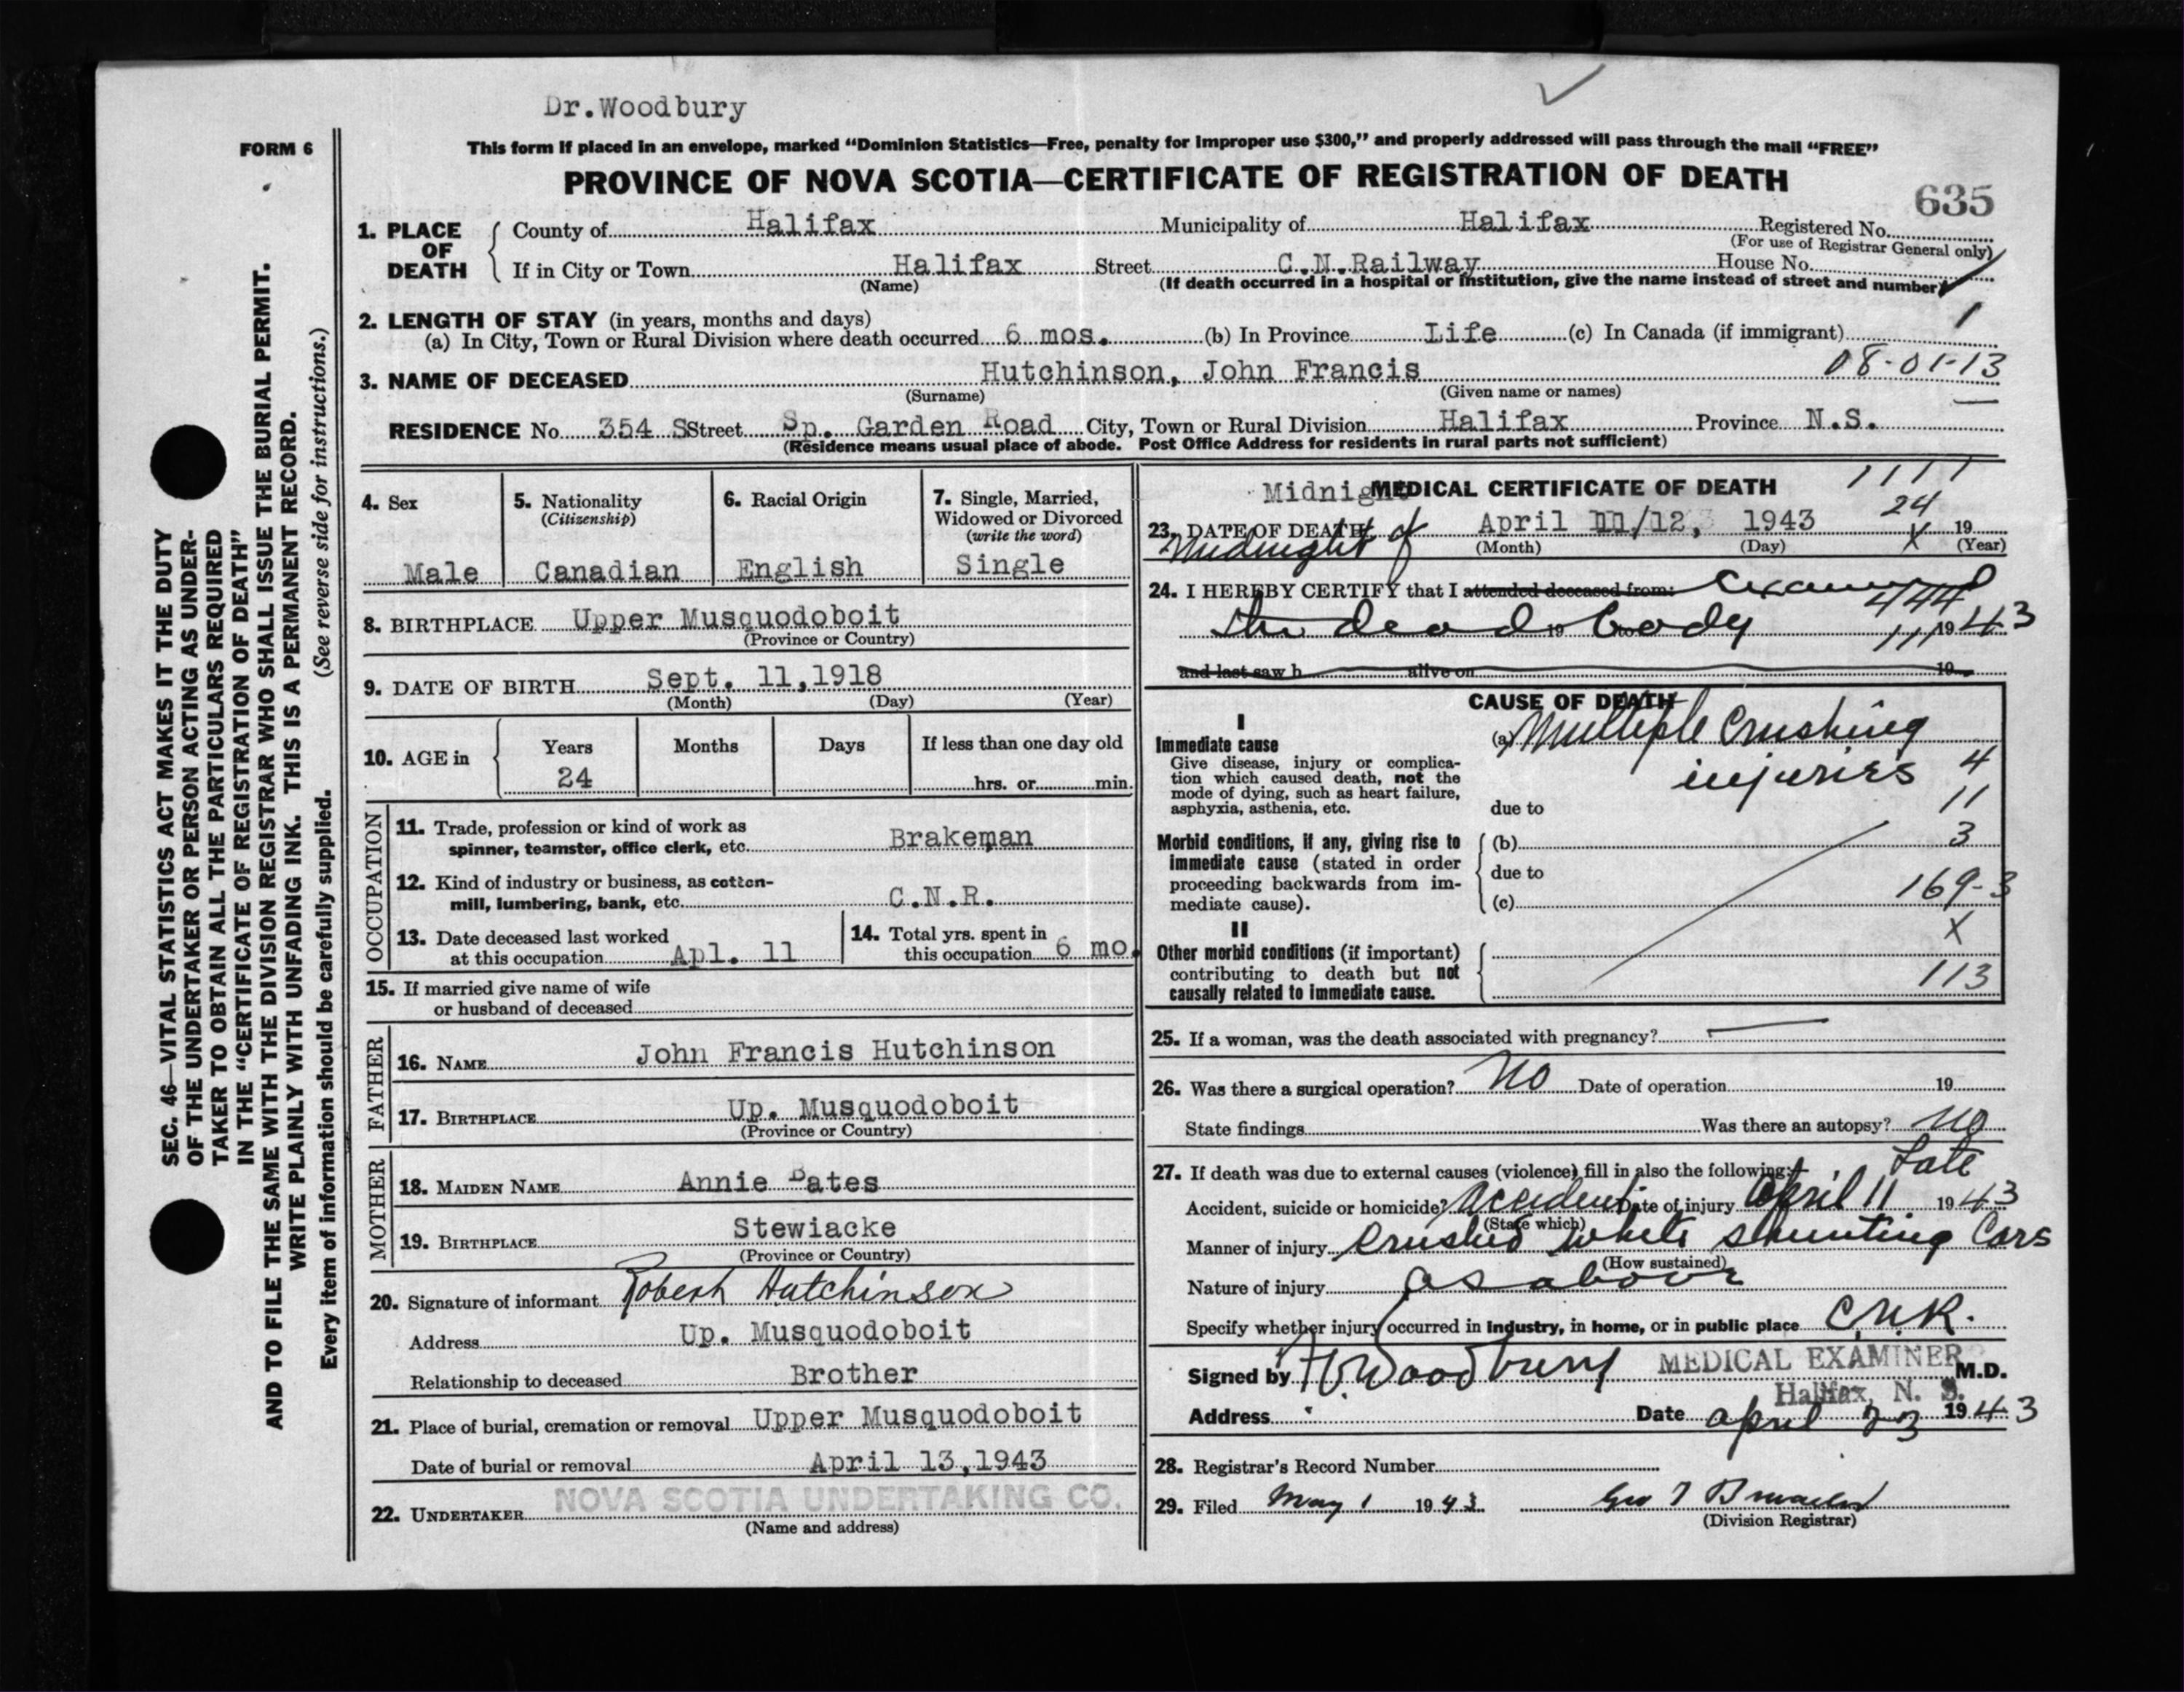 Dr.Woodbury
FORM 6
This form if placed in an envelope, marked "Dominion Statistics—Free, penalty for improper use $300," and properly addressed will pass through the mail "FREE"
PROVINCE OF NOVA SCOTIA—CERTIFICATE OF REGISTRATION OF DEATH
635
1. PLACE OF DEATH County of Halifax Municipality of Halifax Registered No.
(For use of Registrar General only)
If in City or Town Halifax Street C.N.Railway House No.
(Name) (If death occurred in a hospital or institution, give the name instead of street and number)
2. LENGTH OF STAY (in years, months and days) 1
(a) In City, Town or Rural Division where death occurred 6 mos. (b) In Province Life (c) In Canada (if immigrant)
3. NAME OF DECEASED Hutchinson, John Francis 08-01-13
(Surname) (Given name or names)
RESIDENCE No. 354 S Street Sp. Garden Road City, Town or Rural Division Halifax Province N.S.
(Residence means usual place of abode. Post Office Address for residents in rural parts not sufficient)
4. Sex
Male
5. Nationality
(Citizenship)
Canadian
6. Racial Origin
English
7. Single, Married,
Widowed or Divorced
(write the word)
Single
8. BIRTHPLACE Upper Musquodoboit
(Province or Country)
9. DATE OF BIRTH Sept. 11,1918
(Month) (Day) (Year)
10. AGE in Years Months Days If less than one day old
24 hrs. or min.
OCCUPATION
11. Trade, profession or kind of work as
spinner, teamster, office clerk, etc. Brakeman
12. Kind of industry or business, as cotton-
mill, lumbering, bank, etc. C.N.R.
13. Date deceased last worked
at this occupation Apl. 11
14. Total yrs. spent in
this occupation 6 mo.
15. If married give name of wife
or husband of deceased
FATHER
16. NAME John Francis Hutchinson
17. BIRTHPLACE Up. Musquodoboit
(Province or Country)
MOTHER
18. MAIDEN NAME Annie Bates
19. BIRTHPLACE Stewiacke
(Province or Country)
20. Signature of informant Robert Hutchinson
Address Up. Musquodoboit
Relationship to deceased Brother
21. Place of burial, cremation or removal Upper Musquodoboit
Date of burial or removal April 13,1943
22. UNDERTAKER NOVA SCOTIA UNDERTAKING CO.
(Name and address)
Midnight MEDICAL CERTIFICATE OF DEATH 1111
24
23. DATE OF DEATH April 11/12, 1943 X 19
Midnight of (Month) (Day) (Year)
24. I HEREBY CERTIFY that I attended deceased from: Examined
444
the dead body 19 to 1943
111
and last saw h alive on 19
CAUSE OF DEATH
I
Immediate cause
Give disease, injury or complica-
tion which caused death, not the
mode of dying, such as heart failure,
asphyxia, asthenia, etc.
(a) Multiple Crushing
injuries 4
due to 11
Morbid conditions, if any, giving rise to
immediate cause (stated in order
proceeding backwards from im-
mediate cause).
(b) 3
due to
(c) 169-3
X
II
Other morbid conditions (if important)
contributing to death but not
causally related to immediate cause.
113
25. If a woman, was the death associated with pregnancy?
26. Was there a surgical operation? No Date of operation 19
State findings Was there an autopsy? No
27. If death was due to external causes (violence) fill in also the following:— Late
Accident, suicide or homicide? Accident Date of injury April 11 1943
(State which)
Manner of injury Crushed while shunting Cars
(How sustained)
Nature of injury as above
Specify whether injury occurred in industry, in home, or in public place C.N.R.
Signed by Woodbury MEDICAL EXAMINER M.D.
Halifax, N. S.
Address Date april 23 1943
28. Registrar's Record Number
29. Filed May 1 1943
(Division Registrar)
SEC. 46—VITAL STATISTICS ACT MAKES IT THE DUTY
OF THE UNDERTAKER OR PERSON ACTING AS UNDER-
TAKER TO OBTAIN ALL THE PARTICULARS REQUIRED
IN THE "CERTIFICATE OF REGISTRATION OF DEATH"
AND TO FILE THE SAME WITH THE DIVISION REGISTRAR WHO SHALL ISSUE THE BURIAL PERMIT.
WRITE PLAINLY WITH UNFADING INK. THIS IS A PERMANENT RECORD.
Every item of information should be carefully supplied. (See reverse side for instructions.)